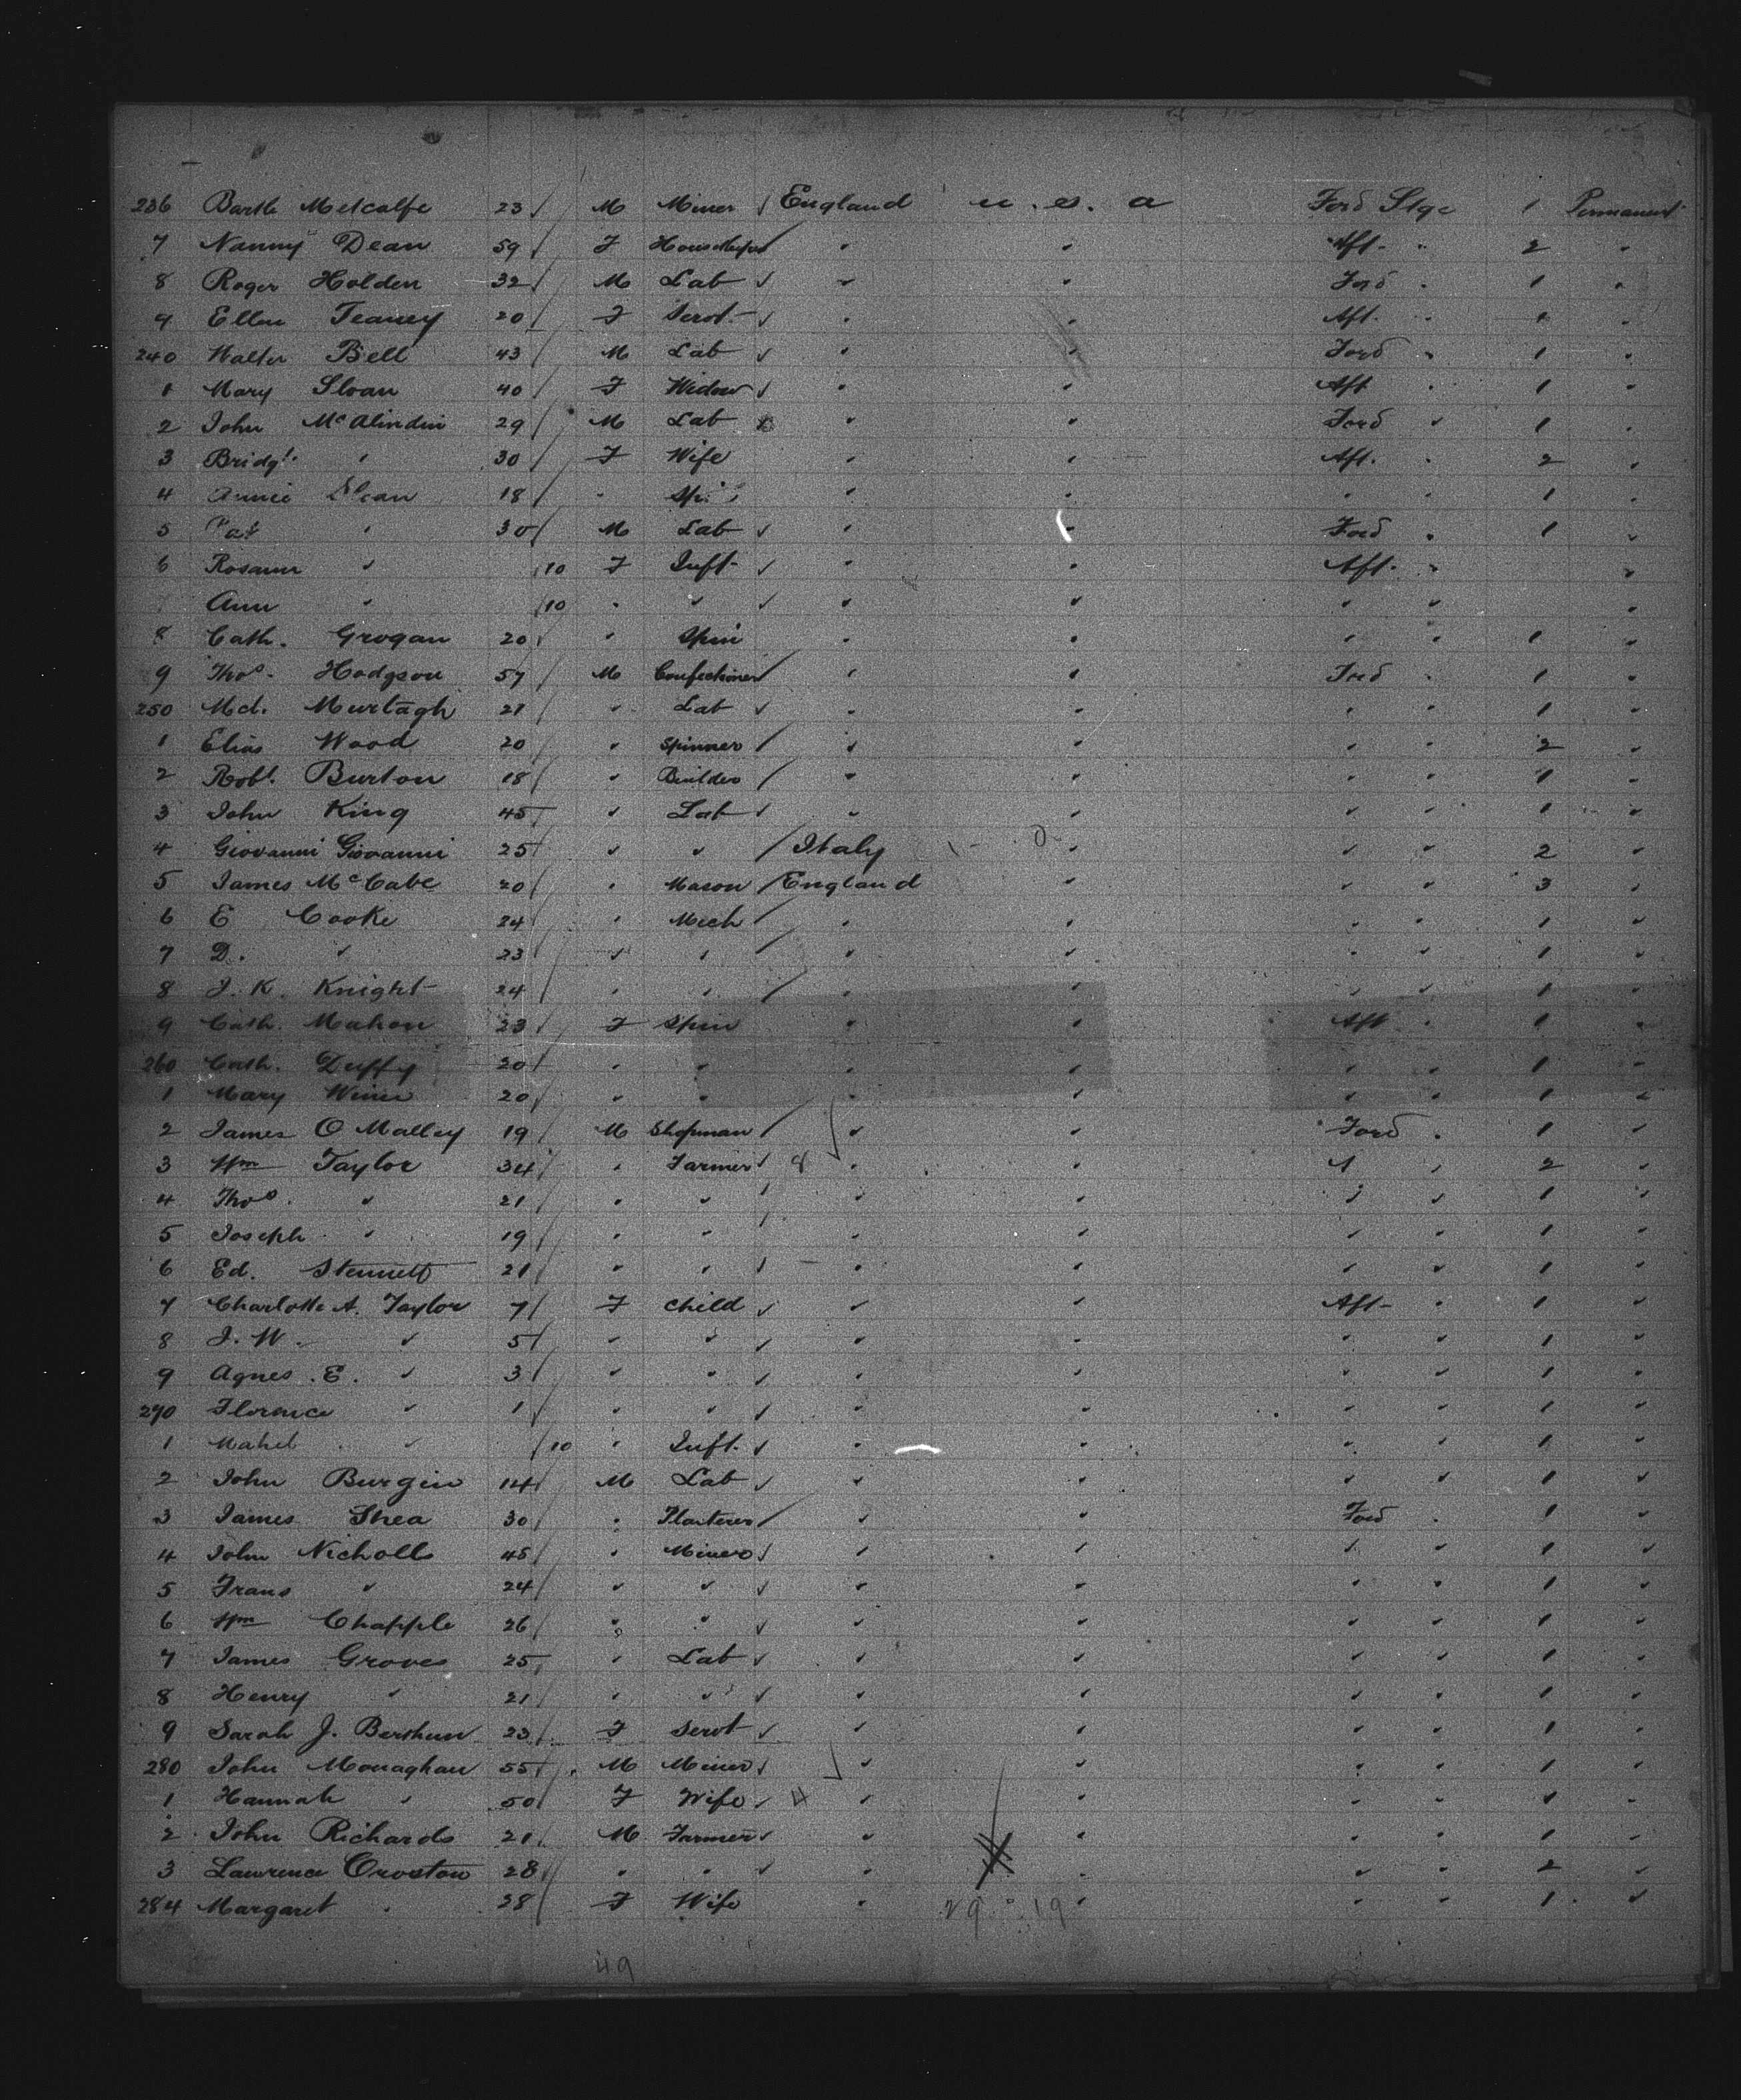 236 Barth Metcalfe 23 M Miner England U.S.A Ford Stge 1 Permanent
7 Nanny Dean 59 F Housekeeper " " Aft " 2 "
8 Roger Holden 32 M Lab " " Ford " 1 "
9 Ellen Feaney 20 F Servt " " Aft " 1 "
240 Walter Bell 43 M Lab " " Ford " 1 "
1 Mary Sloan 40 F Widow " " Aft " 1 "
2 John McAlindin 29 M Lab " " Ford " 1 "
3 Bridgt " 30 F Wife " " Aft " 2 "
4 Annie Sloan 18 " Spi " " " " 1 "
5 Pat " 30 M Lab " " Ford " 1 "
6 Rosann " 10 F Inft " " Aft " "
Ann " 10 " " " " " " "
8 Cath. Grogan 20 " Spin " " " " 1 "
9 Thos. Hodgson 57 M Confectioner " " Ford " 1 "
250 Mcl. Murtagh 21 " Lab " " " " 1 "
1 Elias Wood 20 " Spinner " " " " 2 "
2 Robt. Burton 18 " Builder " " " " 1 "
3 John King 45 " Lab " " " " 1 "
4 Giovanni Giovanni 25 " " Italy " " " 2 "
5 James McCabe 20 " Mason England " " " 3 "
6 E Cooke 24 " Mech " " " " 1 "
7 D. " 23 " " " " " " 1 "
8 J. K. Knight 24 " " " " " " 1 "
9 Cath. Mahon 23 F Spin " " Aft " 1 "
260 Cath. Duffy 20 " " " " " " 1 "
1 Mary Winn 20 " " " " " " 1 "
2 James O Malley 19 M Shopman " " Ford " 1 "
3 Wm Taylor 34 " Farmer 8 " " " " 2 "
4 Thos. " 21 " " " " " " 1 "
5 Joseph " 19 " " " " " " 1 "
6 Ed. Stennett 21 " " " " " " 1 "
7 Charlotte A. Taylor 7 F Child " " Aft " 1 "
8 J. W. " 5 " " " " " " 1 "
9 Agnes E. " 3 " " " " " " 1 "
270 Florence " 1 " " " " " " 1 "
1 Mabel " 10 " Inft. " " " " 1 "
2 John Burgin 14 M Lab " " " " 1 "
3 James Shea 30 " Plasterer " " Ford " 1 "
4 John Nicholls 45 " Miner " " " " 1 "
5 Frans " 24 " " " " " " 1 "
6 Wm Chapple 26 " " " " " " 1 "
7 James Groves 25 " Lab " " " " 1 "
8 Henry " 21 " " " " " " 1 "
9 Sarah J. Bershun 23 F Servt " " " " 1 "
280 John Monaghan 55 M Miner " " " " 1 "
1 Hannah " 50 F Wife 4 " " " " 1 "
2 John Richards 21 M Farmer " " " " 1 "
3 Lawrence Croston 28 " " " " " " 2 "
284 Margaret " 28 F Wife " " " " 1 "
29 19
49